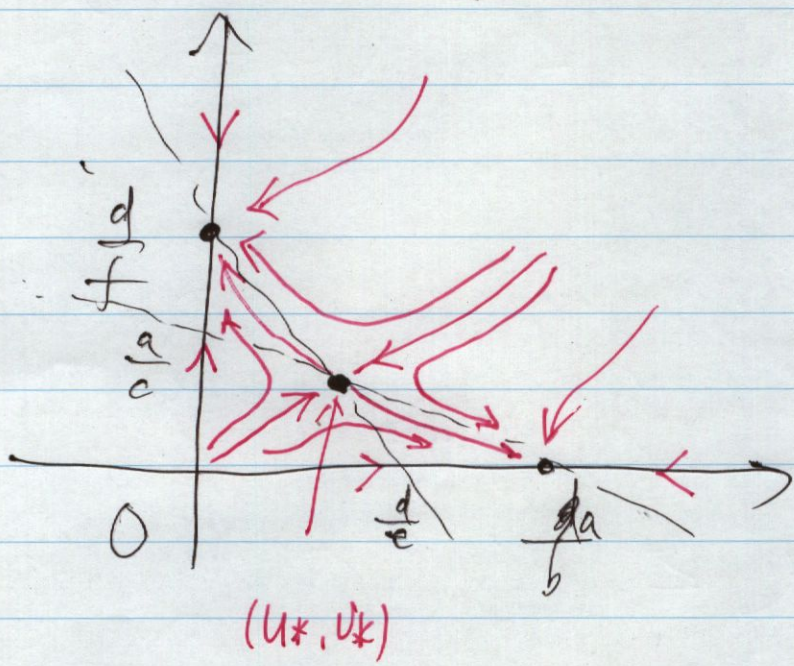 d/f
a/c
0
d/e
a/b
(u*, v*)